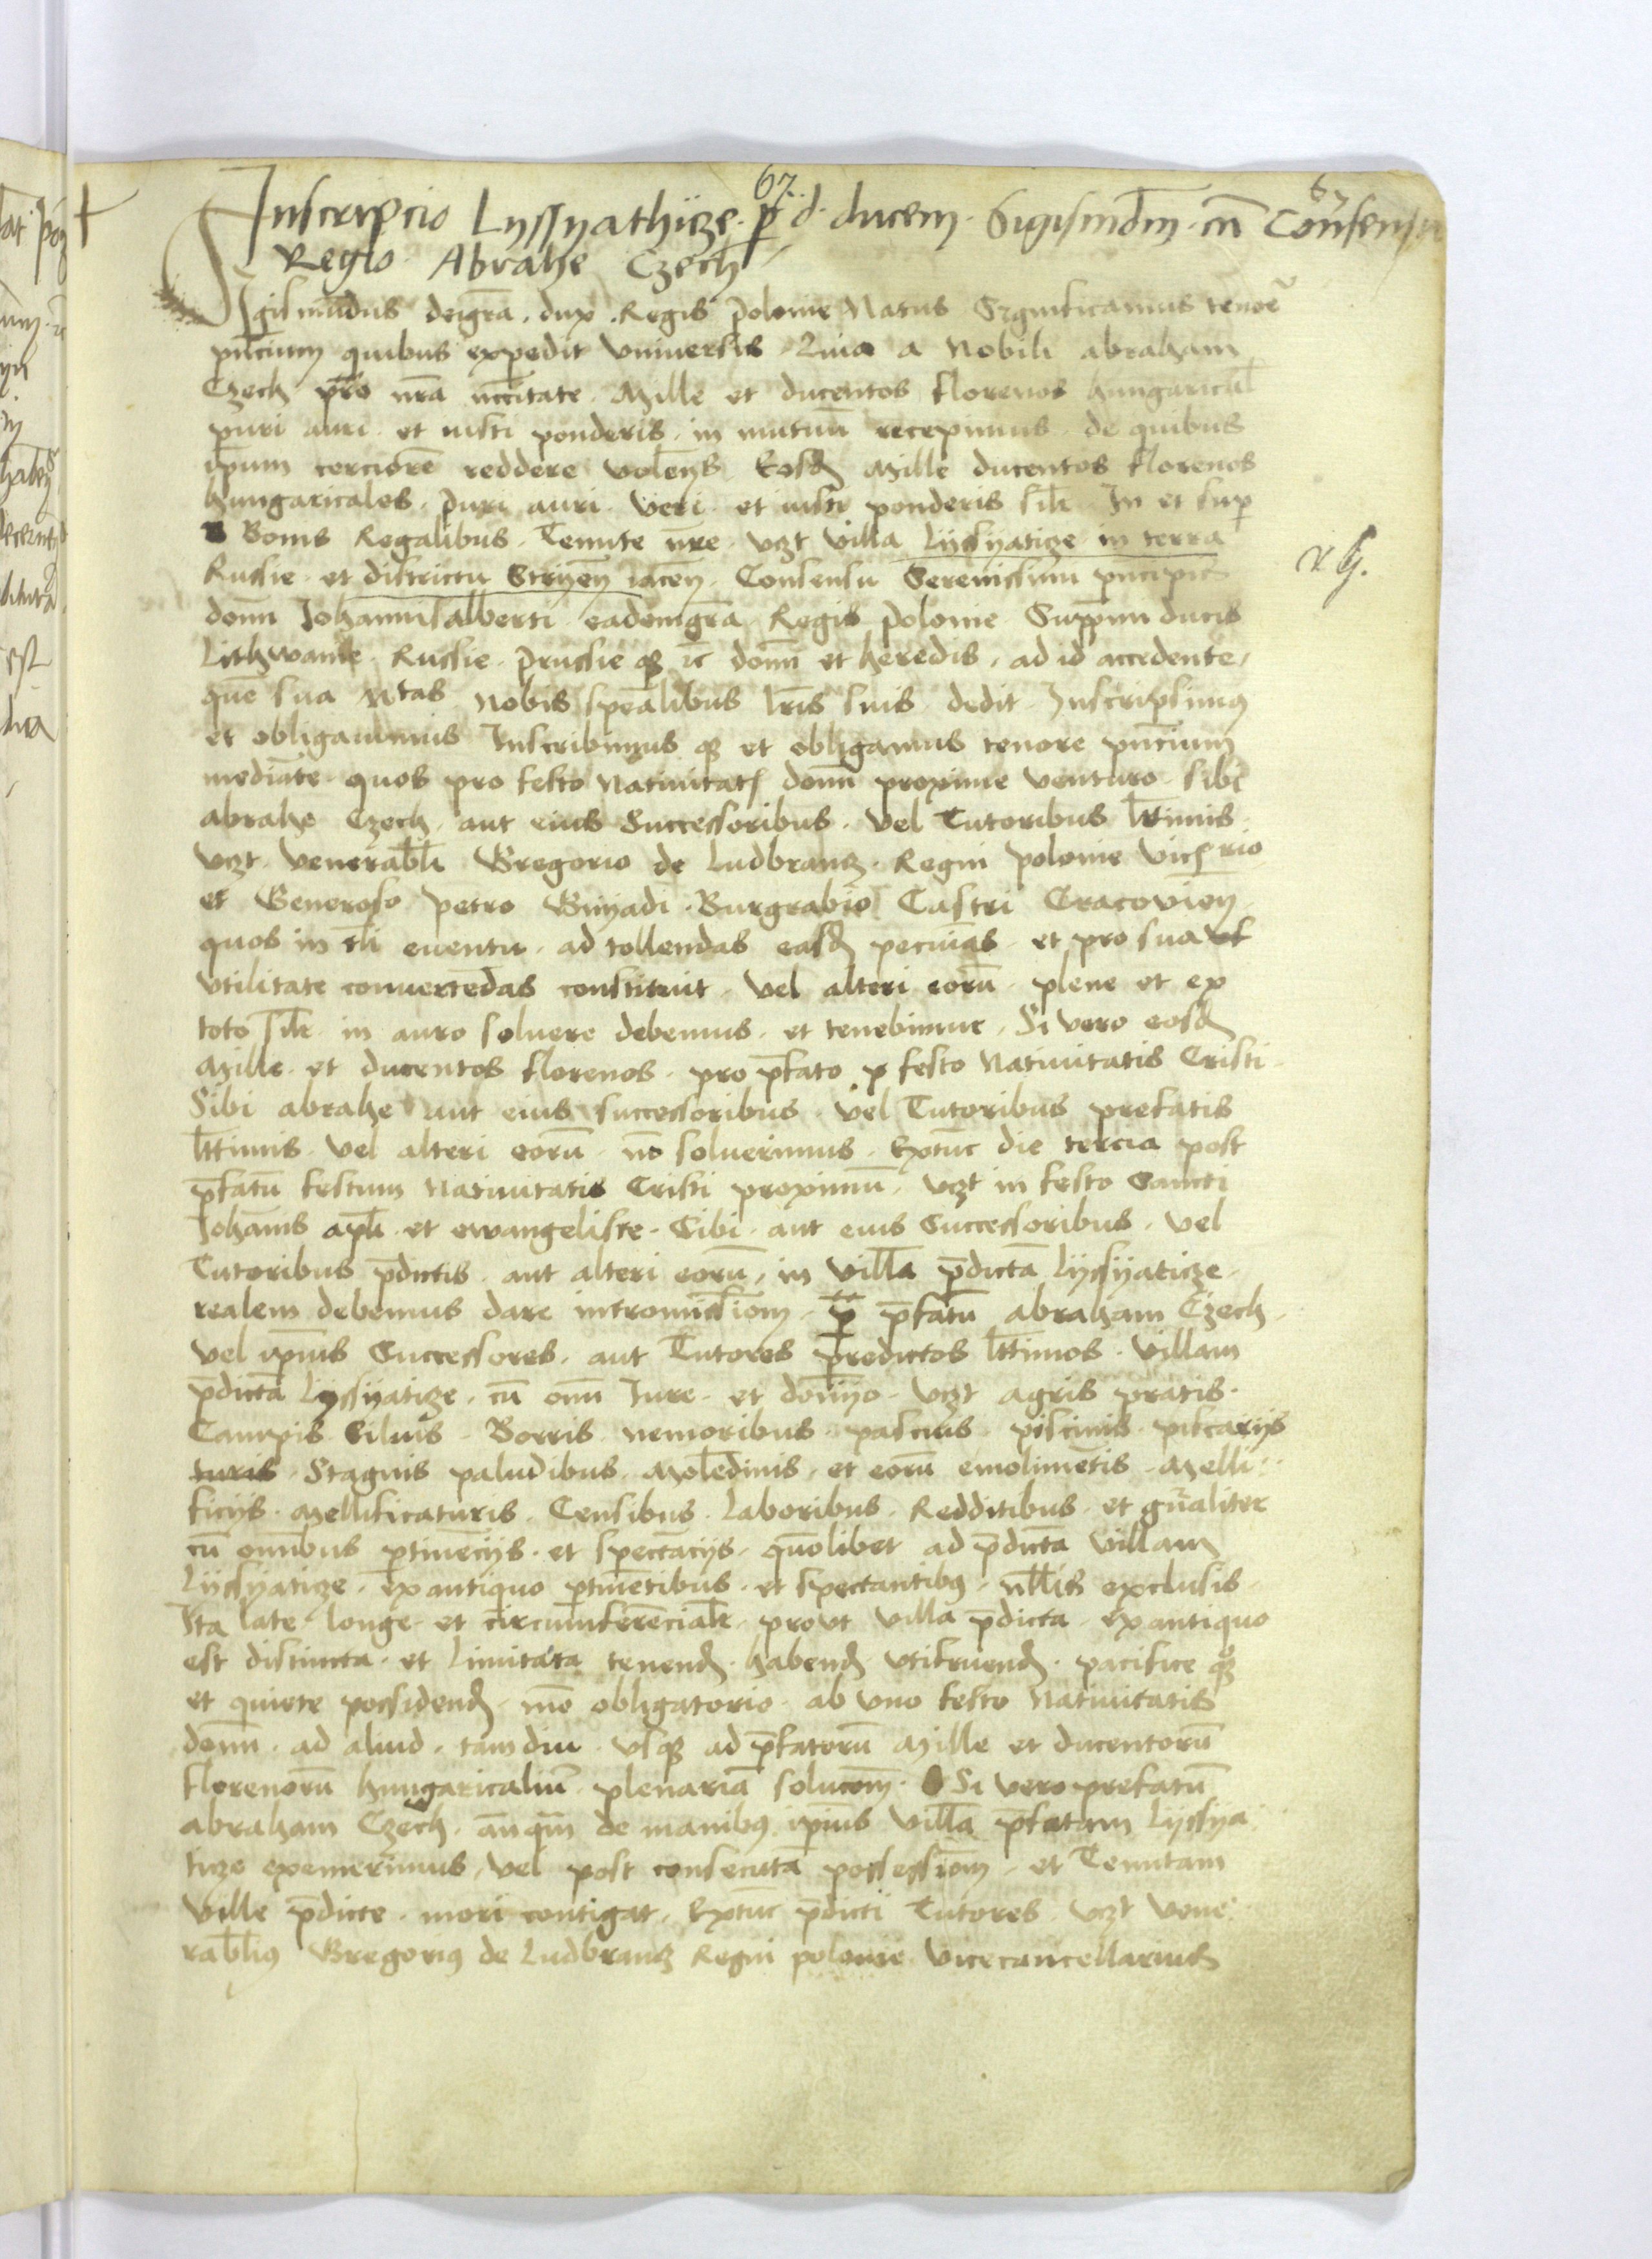 67.
Inscripcio Lyssyathijcze. p̄ d. ducem. Sigismūdm̄. cū Consensu
Regio Abrahe Czech
Sigismūdus deigr̄a. dux. Regis polonie Natus Significamus tenor̄e
pn̄cium quibus expedit vniuersis. Quia a Nobili abraham
Czech pro nr̄a nccītate. Mille et ducentos florenos hungarical̄
puri auri. et iusti ponderis. in mutuū recepimus. de quibus
ip̄um cerciorē reddere volen̄s Eosd̄ Mille ducentos florenos
hungaricales. puri auri. veri. et iusti ponderis sil̄r In et sup̄
Bonis Regalibus. Tenute nr̄e. vczt villa Lyssyaticze in terra
Russie. et districtu Stryen̄ iacen̄. Consensu Serenissimi principis
domī Johannisalberti eademgr̄a Regis polonie Supp̄mi ducis
Lithwanie. Russie. prussie qꝫ ꝛc domī et heredis. ad id accedente.
quē sua Mtas Nobis spēalibus lr̄is suis dedit Inscripsimꝰ
et obligauimus Inscribimus qꝫ et obligamus tenore pn̄cium
mediāte. quos pro festo Natiuitatꝭ domī proxime venturo. sibi
abrahe Czech. aut eius Successoribus. vel Tutoribus lt̄timis.
vczt venerabl̄i Gregorio de Ludbrancz. Regni polonie vicꝭrio
et Generoso petro Bnyadi. Burgrabio Castri Cracovien̄
quos in tl̄i euentu. ad tollendas easd̄ pecuīas. et pro sua vt
vtilitate conuertēdas constituit. vel alteri eorū. plene et ex
toto sil̄r in auro soluere debemus. et tenebimur. Si vero eosd̄
Mille. et ducentos florenos. pro p̄fato p festo Natiuitatis Cristi.
Sibi abrahe aut eius successoribus. vel Tutoribus prefatis
lt̄timis. vel alteri eorū. nō soluerimus. Extūc die tercia post
p̄fatū festum Natiuitatis Cristi proximū. vczt in festo Sancti
Johānis apl̄i. et ewangeliste. Sibi. aut eius Successoribus. vel
Tutoribus p̄dictis. aut alteri eorū. in villa p̄dictā Lyssyaticze.
realem debemus dare intromissiom̄. p̄ p̄fatū abraham Czech.
vel ip̄ius Successores. aut Tutores predictos lt̄timos. villam
p̄dictā Lyssyaticze. cū omī Iure. et domīyo. vczt agris pratis.
Campis Siluis. Borris nemoribus. pascuis piscinis. piscarijs
turis. Stagnis paludibus. Molēdinis. et eorū emolimētis. Melli
ficijs. Mellificaturis. Censibus. Laboribus. Redditibus. et gn̄aliter
cū om̄ibus ptinēcijs. et spectācijs. quōlibet ad p̄dictā villam
Lyssyaticze. ex antiquo ptinētibus. et spectantibꝰ. nll̄is exclusis.
Ita late. longe. et circumferēcialr̄. prout villa p̄dicta. ex antiquo
est distincta. et limitata tenend̄. habend̄ vtifruend̄. pacifice qꝫ
et quiete possidend̄. mō obligatorio. ab vno festo Natiuitatis
domī. ad aliud. tamdiu. vsqꝫ ad p̄fatorū Mille et ducentorū
florenorū hungaricaliū plenariā solucom̄. Si vero prefatū
abraham Czech. anq̄m de manibꝰ ip̄ius villā p̄fatam Lyssya
ticze exemerimus. vel post consecutā possessiom̄. et Tenutam
ville p̄dicte. mori contigat. Extūc p̄dicti Tutores vczt vene
rabl̄iꝰ Gregoriꝰ de Ludbrancz Regni polonie vicecancellarius